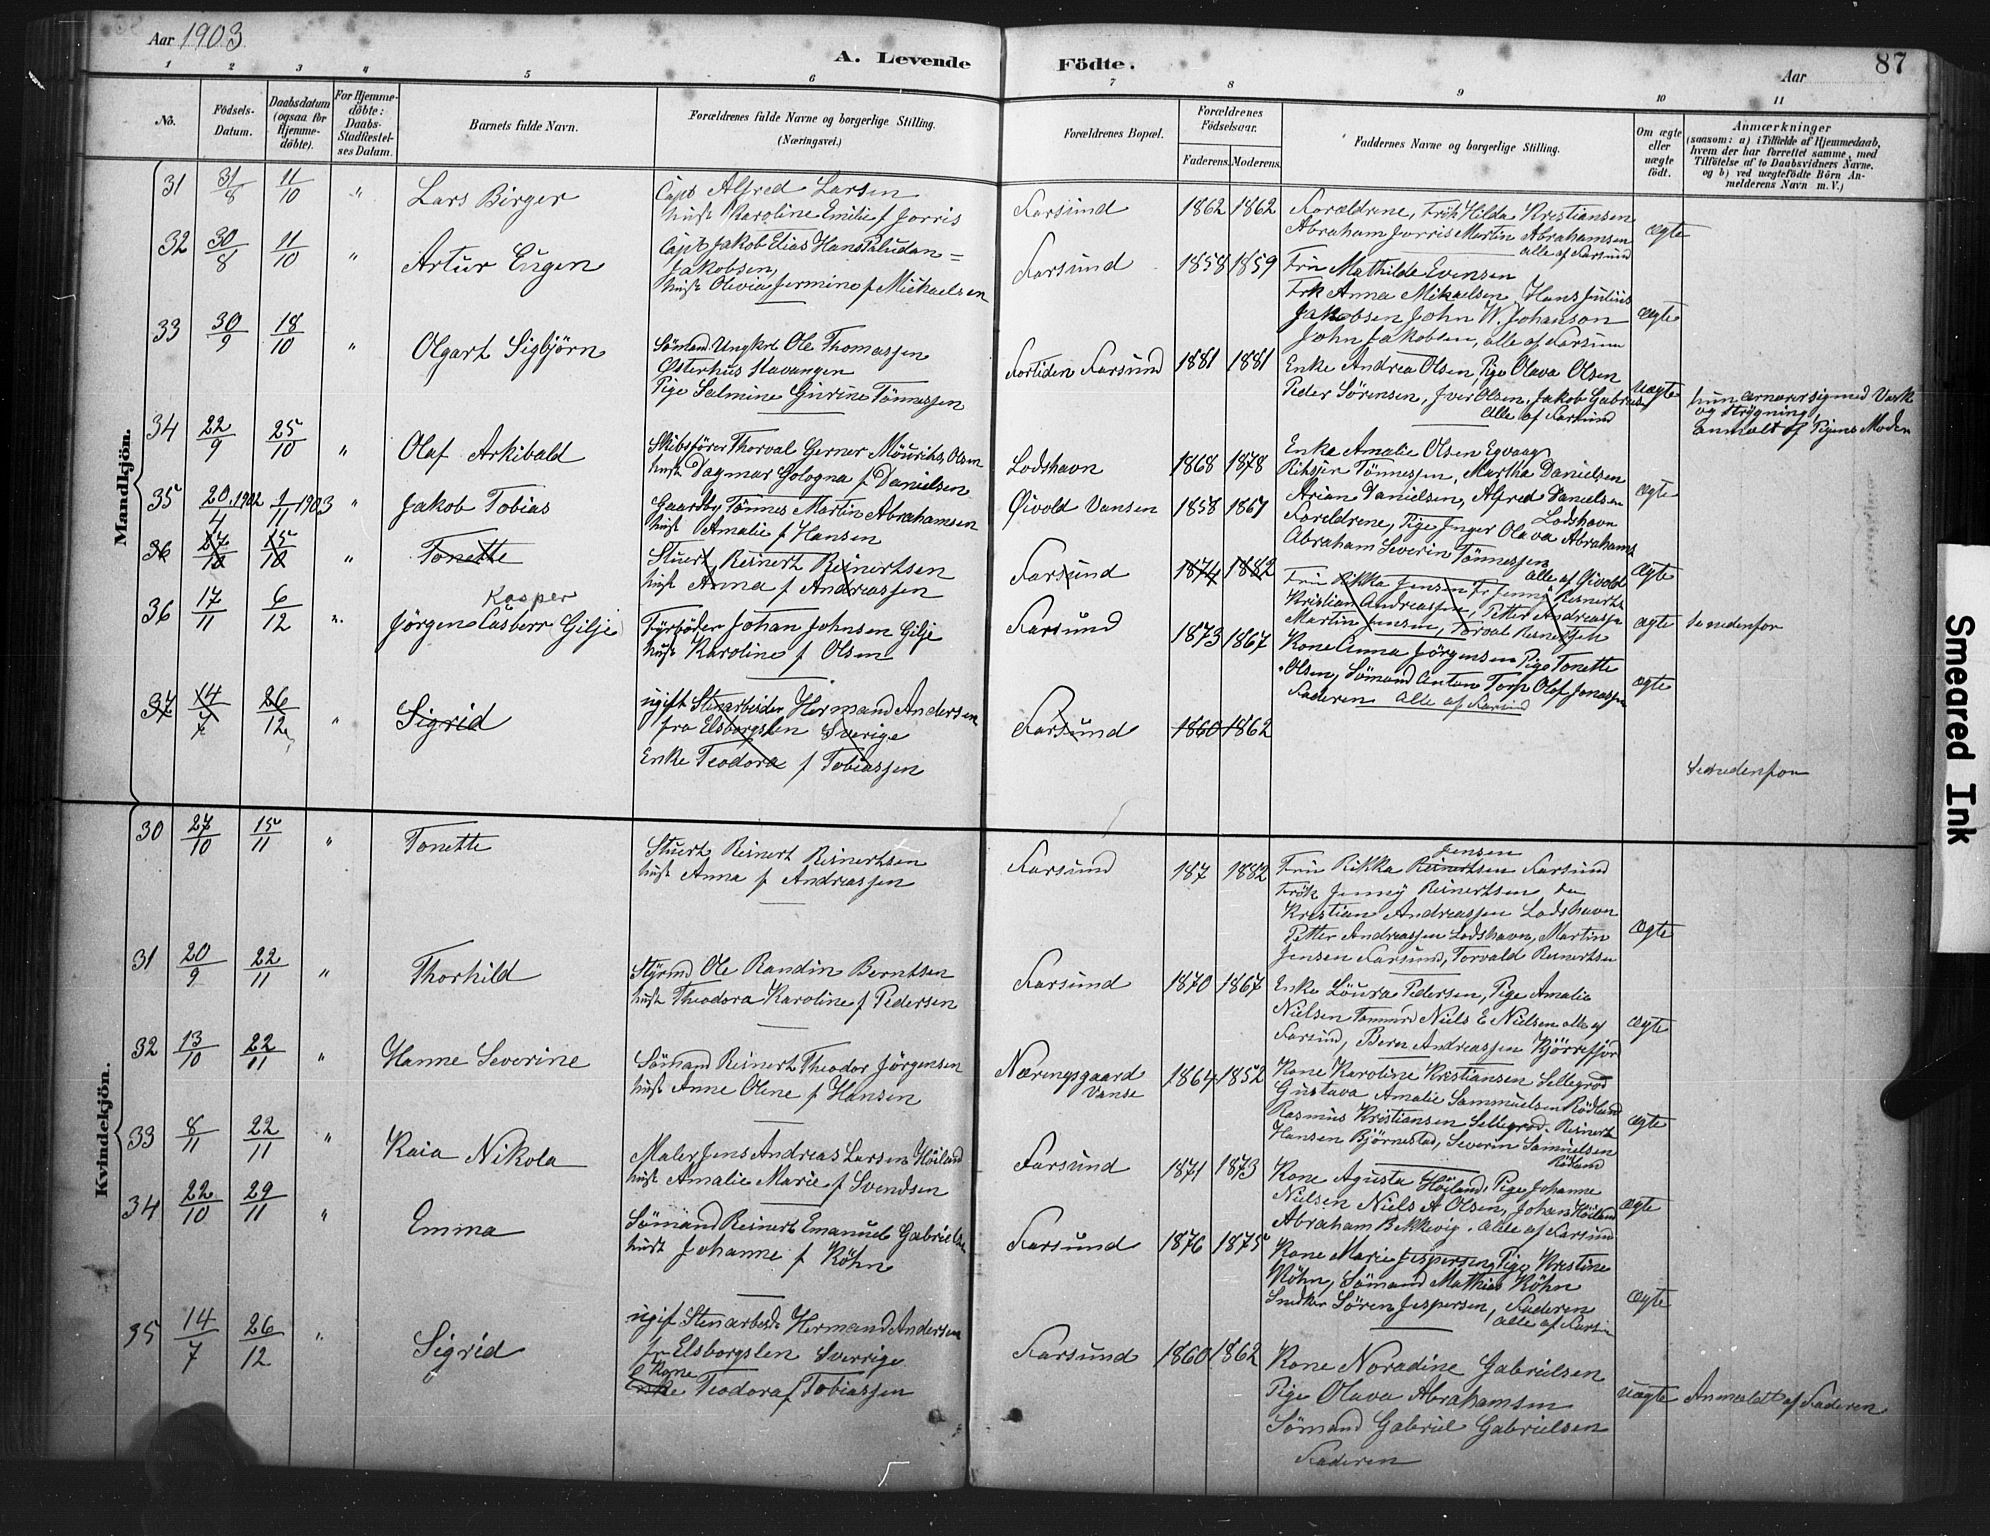 Aar 1903
A. Levende Födte.
Aar
87
1 2 3 4 5 6 7 8 9 10 11
No.
Födsels-Datum.
Daabsdatum (ogsaa for Hjemme-döbte).
For Hjemme-döbte: Daabs-Stadfæstel-ses Datum.
Barnets fulde Navn.
Forældrenes fulde Navne og borgerlige Stilling. (Næringsvei.)
Forældrenes Bopæl.
Forældrenes Födselsaar.
Faderens. Moderens.
Faddernes Navne og borgerlige Stilling.
Om ægte eller uægte födt.
Anmærkninger
(saasom: a) i Tilfælde af Hjemmedaab,
hvem der har forrettet samme, med
Tilföielse af to Daabsvidners Navne.
og b) ved uægtefödte Börn An-
melderens Navn m. V.)
Mandkjön.
31 31/8 11/10 " Lars Birger
Capt Alfred Larsen
hust Karoline Emilie f Jorris
Farsund 1862 1862
Forældrene, Frök Hilda Kristiansen
Abraham Jorris Martin Abrahamsen
alle af Farsund
Ægte
32 30/8 11/10 " Artur Eugen
Capt Jakob Elias Hans Paludan=
Jakobsen,
hust Olevia Jermine f Mickaelsen
Farsund 1858 1859
Fru Mathilde Evensen
Frk Anna Mikaelsen Hans Julius
Jakobsen John W. Johanson
John Jakobsen, alle af Farsun
Ægte
33 30/9 18/10 " Olgart Sigbjörn
Sömand Ungkrl Ole Thomassen
Østerhus Stavanger
Pige Salmine Gurine Tönnessen
Fortiden Farsund 1881 1881
Enke Andrea Olsen, Pige Olava Olsen
Peder Sörensen, Iver Olsen, Jakob Gabriels
Alle af Farsund
Uægte
hun ernærer sig med Vask
og Strygning,
anmeldt af Pigens Moder
34 22/9 25/10 " Olaf Arkibald
Skibsförer Thorval Gerner Möurihs Olsen
hust Dagmar Gologna f Danielsen
Lodshavn 1868 1878
Enke Amalie Olsen Egvaag
Rikssje Tönnessen, Martha Danielsen
Arian Danielsen, Alfred Danielsen
Lodshavn
Ægte
35 20/4 1902 1/11 1903 " Jakob Tobias
Gaardbr Tönnes Martin Abrahamsen
hust Amalie f Hansen
Øivold Vansen 1858 1867
Foreldrene, Pige Inger Olava Abrahams
Abraham Severin Tönnessen
Alle af Øivold
Ægte
36 27/10 15/10 " Tonette
Stuert Reinert Reinertsen
hust Anna f Andreassen
Farsund 1874 1882
Fru Rikka Jensen Fr Jenny Reinerts
Kristian Andreassen, Petter Andreasse
Martin Jensen, Torval Reinertsen
Ægte Se nedenfor
36 17/11 6/12 " Jörgen Casberr Gilje
Kasper
Fyrböder Johan Johnsen Gilje
hust Karoline f Olsen
Farsund 1873 1867
Kone Anna Jörgensen Pige Tonette
Olsen, Sömand Anton Torp Olaf Jonassen
Faderen alle af Farsund
Ægte
37 14/7 26/12 " Sigrid
ugift Stenarbeider Hermand Andersen
fra Elsborgslen Sverige
Enke Teodora f Tobiassen
Farsund 1860 1862
Se nedenfor
Kvindekjön.
30 27/10 15/11 " Tonette
Stuert Reinert Reinertsen
hust Anna f Andreassen
Farsund 187 1882
Jensen
Fru Rikka Reinertsen Farsund
Frök Jenny Reinertsen do
Kristian Andreassen Lodshavn
Petter Andreassen Lodshavn, Martin
Jensen Farsund, Torvald Reinertsen
Ægte
31 20/9 22/11 " Thorhild
Styrmd Ole Randin Berntsen
hust Theodora Karoline f Pedersen
Farsund 1870 1867
Enke Löura Pedersen, Pige Amalie
Nielsen Tommrd Niels E Nielsen alle af
Farsund, Bern Andreassen Kjörrefjor
Ægte
32 13/10 22/11 " Hanne Severine
Sömand Reinert Theodor Jörgensen
hust Anne Oline f Hansen
Næringsgaard Vanse 1864 1852
Kone Karoline Kristiansen Sellegrod
Gustava Amalie Sammuelsen Rödland
Rasmus Kristiansen Sellegrod. Reinert
Hansen Björnestad, Severin Samuelsen
Rödland
Ægte
33 8/11 22/11 " Kaia Nikola
Maler Jens Andreas Larsen Höiland
hust Amalie Marie f Svendsen
Farsund 1871 1873
Kone Agusta Höiland, Pige Johanne
Nielsen Niels A Olsen, Johan Höiland
Abraham Bekkevig. alle af Farsund
Ægte
34 22/10 29/11 " Emma
Sömand Reinert Emanuel Gabrielse
hust Johanne f Köhn
Farsund 1876 1875
Kone Marie Jespersen, Pige Kristine
Köhn, Sömand Mathias Köhn
Snedker Sören Jespersen, Faderen
alle af Farsun
Ægte
35 14/7 26/12 " Sigrid
ugif Stenarbeid Hermand Andersen
fr Elsborgslen Sverrige
Kone
Enke Teodora f Tobiassen
Farsund 1860 1862
Kone Noradine Gabrielsen
Pige Olava Abrahamsen
Sömand Gabriel Gabrielsen
Faderen
Uægte Anmeldt af Faderen
Smeared Ink